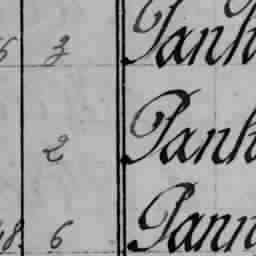 6 3 Pank
2 Pank
48. 6 Pann